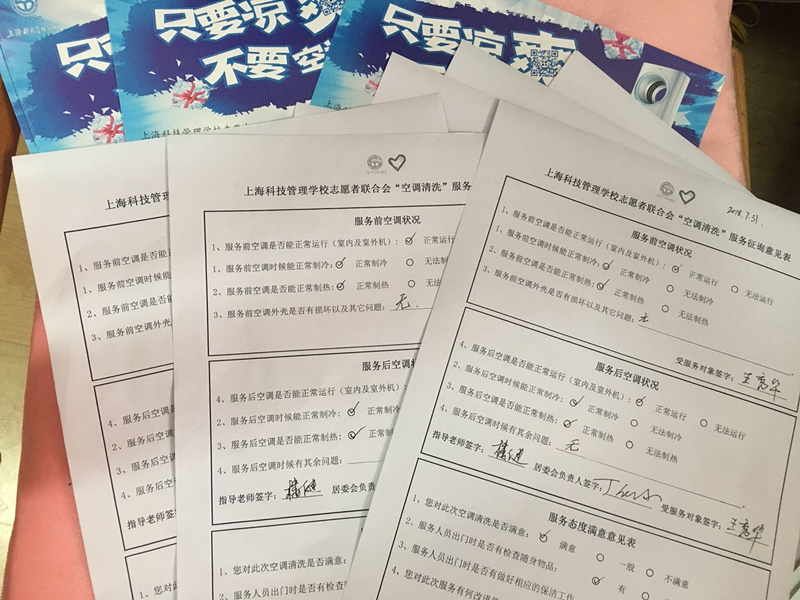 只要凉爽
只要凉爽
不要空
只要凉爽
上海科技管理学校志
上海科技管理学校志愿者联合
上海科技管理学
1、服务前空调是否能
1、服务前空调时候
2、服务前空调是否
3、服务前空调外壳
4、服务后空调是否
2、服务后空调时
3、服务后空调是
4、服务后空调
指导老师签字:
1、您对此次
2、服务人
上海科技管理学校志愿者联合会“空调清洗”服务
服务前空调状况
1、服务前空调是否能正常运行(室内及室外机): 正常运行
1、服务前空调时候能正常制冷: 正常制冷 无法制
2、服务前空调是否能正常制热: 正常制热 无法
3、服务前空调外壳是否有损坏以及其它问题: 无.
服务后空调状
4、服务后空调是否能正常运行(室内及室外机):
2、服务后空调时候能正常制冷: 正常制冷
3、服务后空调是否能正常制热: 正常制
4、服务后空调时候有其余问题:
指导老师签字: 居委会负责
1、您对此次空调清洗是否满意:
2、服务人员出门时是否有检查随
上海科技管理学校志愿者联合会“空调清洗”服务征询意见表
2018.7.31.
服务前空调状况
1、服务前空调是否能正常运行(室内及室外机): 正常运行 无法运行
1、服务前空调时候能正常制冷: 正常制冷 无法制冷
2、服务前空调是否能正常制热: 正常制热 无法制热
3、服务前空调外壳是否有损坏以及其它问题: 无
受服务对象签字:
服务后空调状况
4、服务后空调是否能正常运行(室内及室外机): 正常运行 无法运行
2、服务后空调时候能正常制冷: 正常制冷 无法制冷
3、服务后空调是否能正常制热: 正常制热 无法制热
4、服务后空调时候有其余问题: 无
指导老师签字: 居委会负责人签字: 受服务对象签字:
服务态度满意意见表
1、您对此次空调清洗是否满意: 满意 一般 不满意
2、服务人员出门时是否有检查随身物品: 有
3、服务人员出门时是否有做好相应的保洁工作
4、您对此次服务有何改进